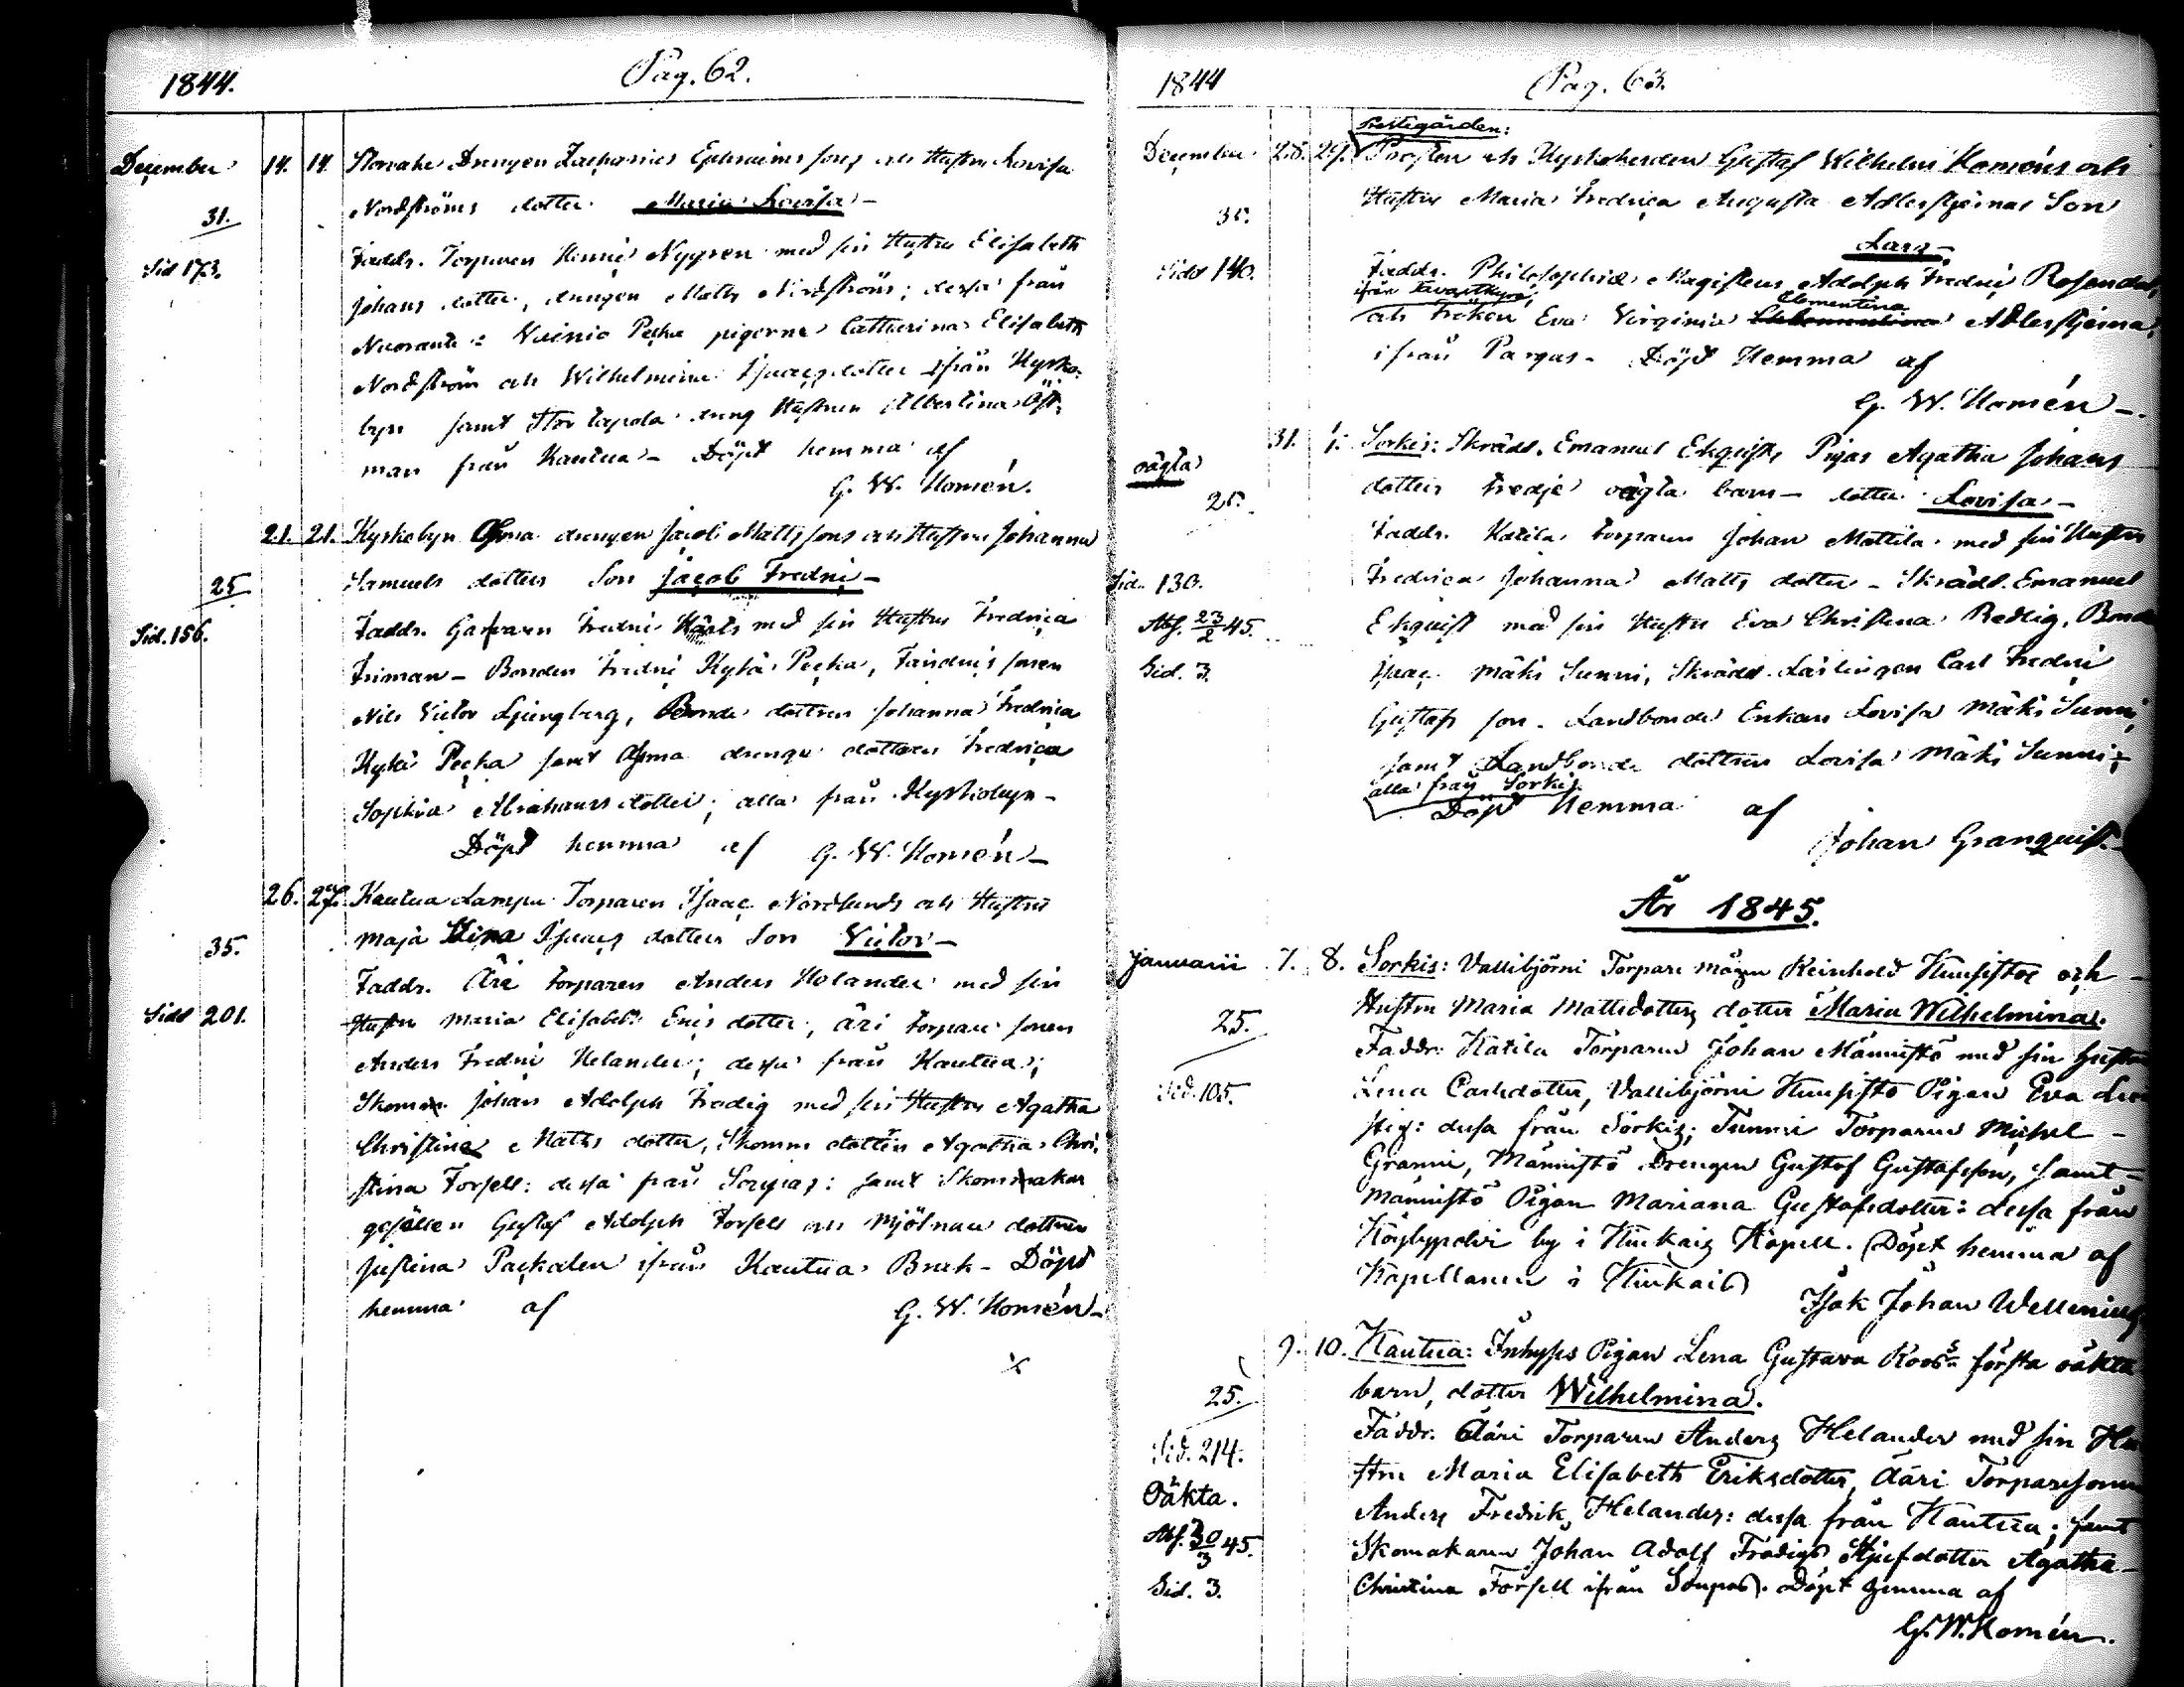 1844.
Pag. 62.
December 14. 14. Storcahe Drengen Zacharias Ephraims sons och Hustru Lovisa
31.
Nordströms dotter Maria Lovisa –
Sid 173.
Faddr. Torparen Henric Nygren med sin Hustru Elisabeth
Johans dotter, drengen Matts Nordström; dessa från
Vainio Pecka pigorna Catharina Elisabeth
Nordström och Wilhelmina Isaacs dotter ifrån Kyrko-
byn samt Stor tapola dreng Hustrun Albertina Öst-
man från Kautua – Döpt hemma af
G. W. Homén.
21. 21. Kyrkobyn drengen Jacob Mattssons och Hustru Johanna
25
Samuels dotters Son Jacob Fredric –
Sid. 156.
Faddr. Garfvaren Fredric med sin Hustru Fredrica
Friman – Bonden Fredric Kylä Pecka, sonen
Nils Victor Ljungberg, Bonde dottren Johanna Fredrica
Kylä Pecka samt drenge dottren Fredrica
Sophia Abrahams dotter; alla från Kyrkobyn –
Döpt hemma af G. W. Homén –
26. 27. Kautua Lampu Torparen Isaac Nordlunds och Hustru
35.
Maja Stina Isaacs dotters Son Victor –
Sid 201.
Faddr. Äri torparen Anders Helander med sin
Hustru Maria Elisabeth Erics dotter, Äri torpare sonen
Anders Fredric Helander; dessa från Kautua;
Skomm. Johan Adolph Fredig med sin Hustru Agatha
Christina Matts dotter, Skomm dottren Agatha Chri-
stina Forsell: dessa från samt Skomakar
gesällen Gustaf Adolph Forsell och Mjölnare dottren
Justina Packalen ifrån Kautua Bruk – Döpt
hemma af G. W. Homén –
1844
Pag. 63.
Prestegården:
December 28. 29. Prosten och Kyrkoherden Gustaf Wilhelm Homéns och
Hustru Maria Fredrica Augusta Adlerstjernas Son
Lars –
Sid 140.
Faddr. Philosophiæ Magistern Adolph Fredric Rosendal,
ifrån Tavastkyro;
Clementina
och Fröken Eva Virginia Adlerstjerna,
ifrån Pargas – Döpt Hemma af
G. W. Homén –.
31. 1. Sorkis: Skrädd. Emanuel Ekquists Pigas Agatha Johans
oägta
dotters tredje oägta barn – dotter Lovisa –
25.
Faddr. Katila torparen Johan Mattila med sin Hustru
Sid. 130.
Fredrica Johanna Matts dotter – Skrädd. Emanuel
Abs. 23/2 45.
Ekquist med sin Hustru Eva Christina Redlig, Bond
Sid. 3.
Isaac Mäki Sunni, Skrädd. Lärlingen Carl Fredric
Gustafs son. Landbonde Enkan Lovisa Mäki Sunni,
samt Landbonde dottren Lovisa Mäki Sunni;
alla från Sorkis.
Döpt Hemma af
Johan Granquist.
År 1845.
Januarii 7. 8. Sorkis: Vallibjörni Torpare mågen Reinhold Kuusistos och
25.
Hustru Maria Mattsdotters dotter Maria Wilhelmina.
Faddr: Katila Torparen Johan Männistö med sin Hustru
Sid. 105.
Lena Carlsdotter, Vallibjörni Kuusisto Pigan Eva
stig: dessa från Sorkis; Torparen Michel
Granni, Männistö Drengen Gustaf Gustafsson, samt
Männistö Pigan Mariana Gustafsdotter: dessa från
by i Kiukais Kapell. Döpt hemma af
Kapellanen i Kiukais Isak Johan Wellenius
9. 10. Kautua: Inhyses Pigan Lena Gustava Roos's första oäkta
25.
barn, dotter Wilhelmina.
Sid. 214.
Faddr. Ääri Torparen Anders Helander med sin Hu
Oäkta.
stru Maria Elisabeth Eriksdotter, Ääri Torparesonen
Abs. 30/3 45.
Anders Fredrik Helander: dessa från Kautua; samt
Skomakaren Johan Adolf Frödigs Styfdotter Agatha
Sid. 3.
Christina Forsell ifrån. Döpt hemma af
G. W. Homén.